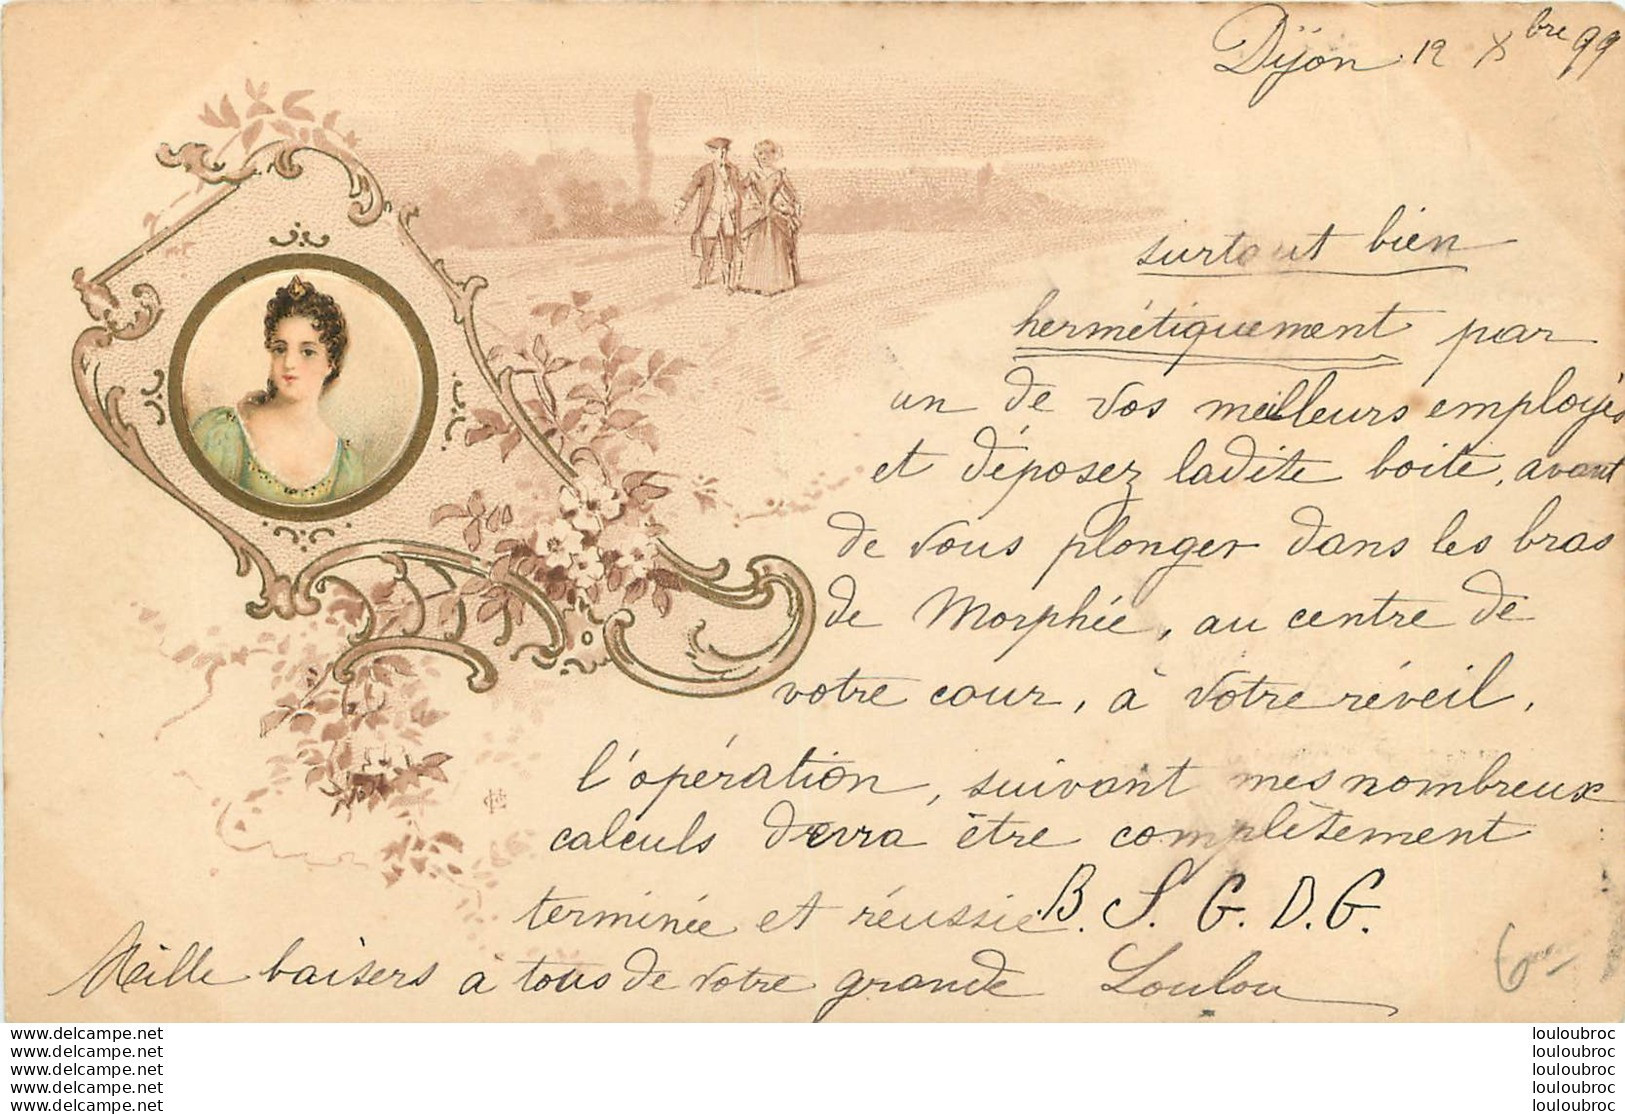 Dijon 12 Xbre 99
surtout bien
hermétiquement par
un de vos meilleurs employés
et déposez ladite boite, avant
de vous plonger dans les bras
de Morphée, au centre de
votre cour, à votre réveil,
l'opération, suivant mes nombreux
calculs devra être complètement
terminée et réussie B. S. G. D. G.
Mille baisers à tous de votre grande Loulou
www.delcampe.net louloubroc
www.delcampe.net louloubroc
www.delcampe.net louloubroc
www.delcampe.net louloubroc
www.delcampe.net louloubroc